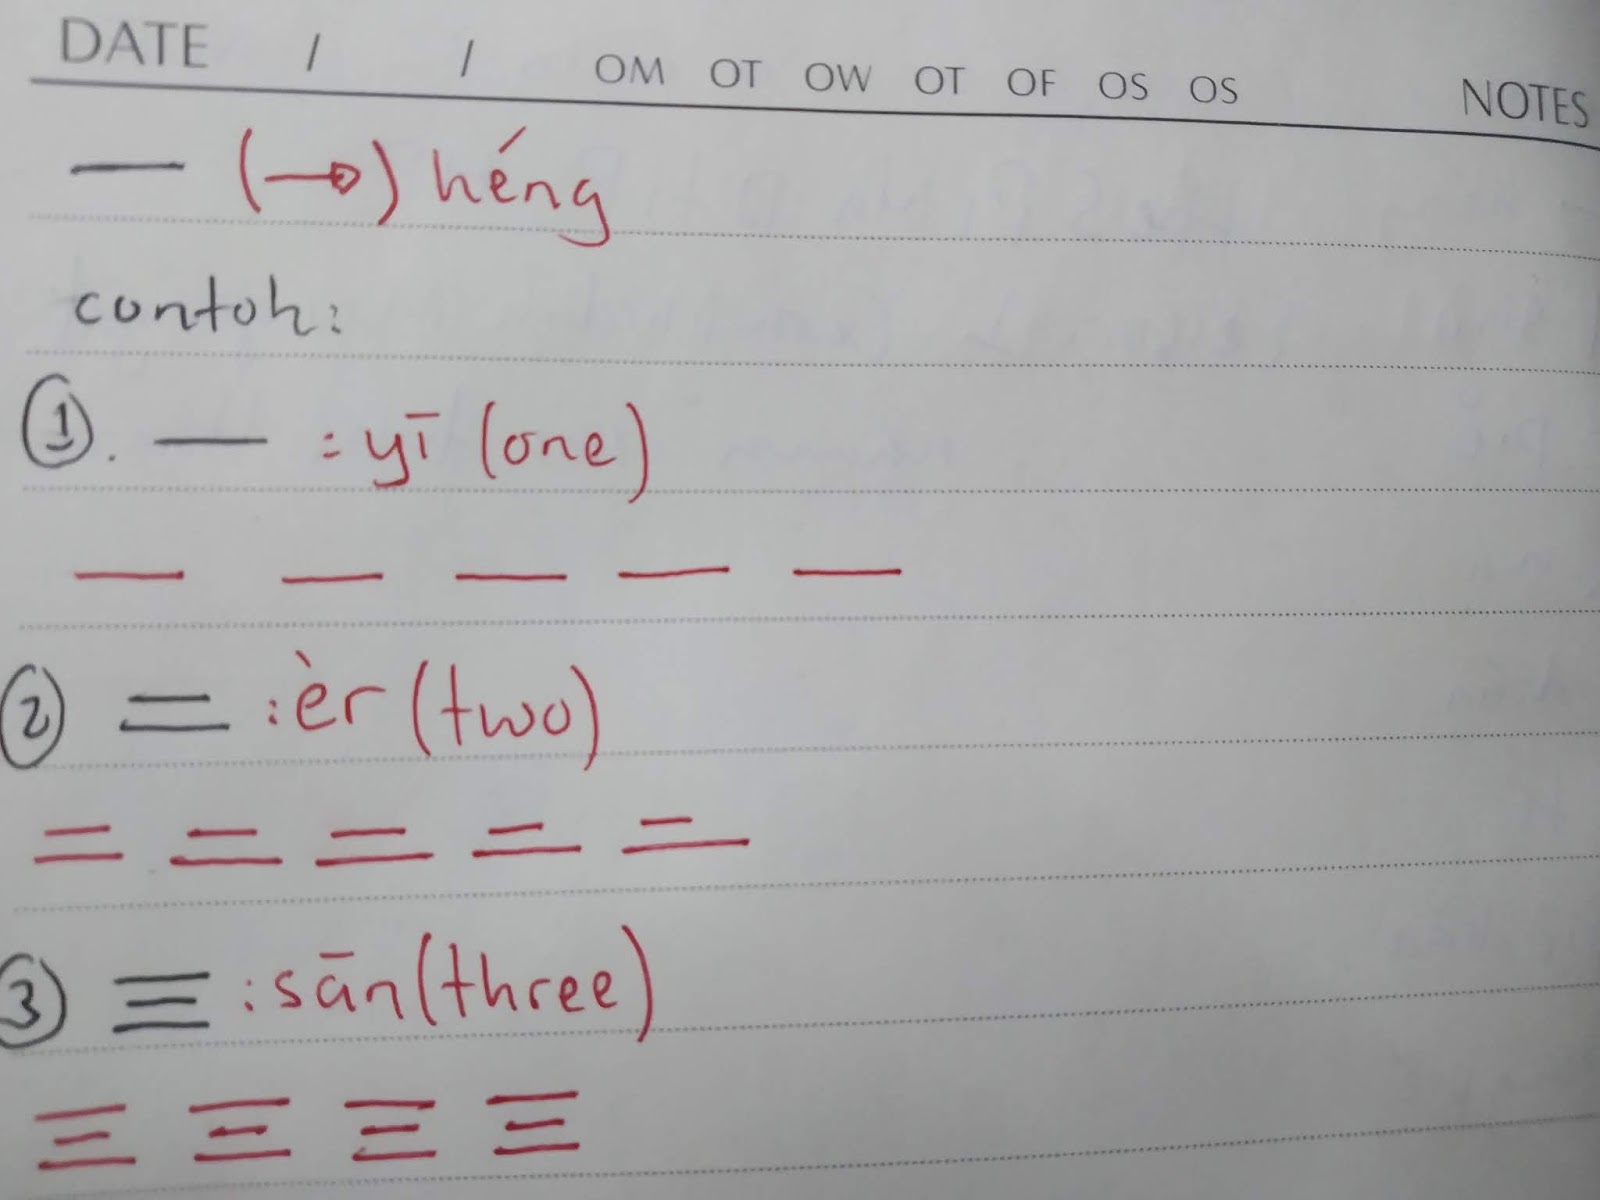 DATE / / OM OT OW OT OF OS OS NOTES
一 (→) héng
contoh:
1. 一 : yī (one)
一 一 一 一 一
2 二 : èr (two)
二 二 二 二 二
3 三 : sān (three)
三 三 三 三